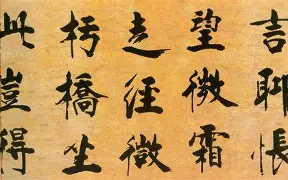 言聊悵
望微霜
走徑微
朽橋坐
此豈得